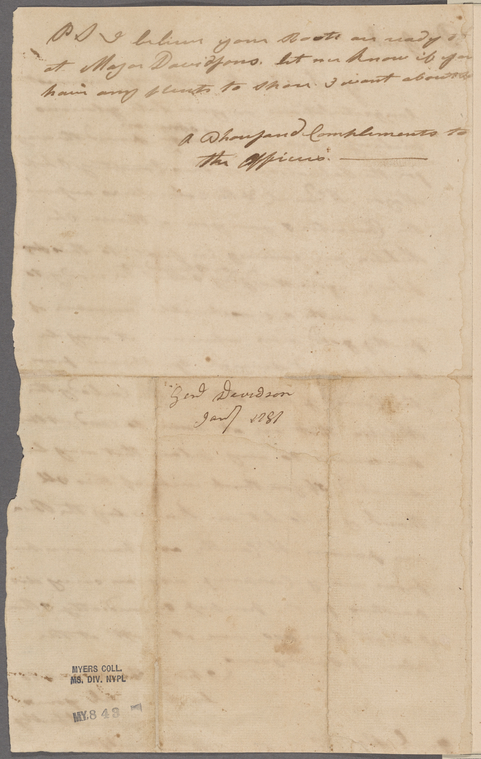 PS I believe your Boots are ready
at Major Davidsons. let me know if you
have any to spare I want about
A Thousand Compliments to
the Officers.
Genl Davidson
Jany 1781
MYERS COLL.
MS. DIV. NYPL
MY. 843